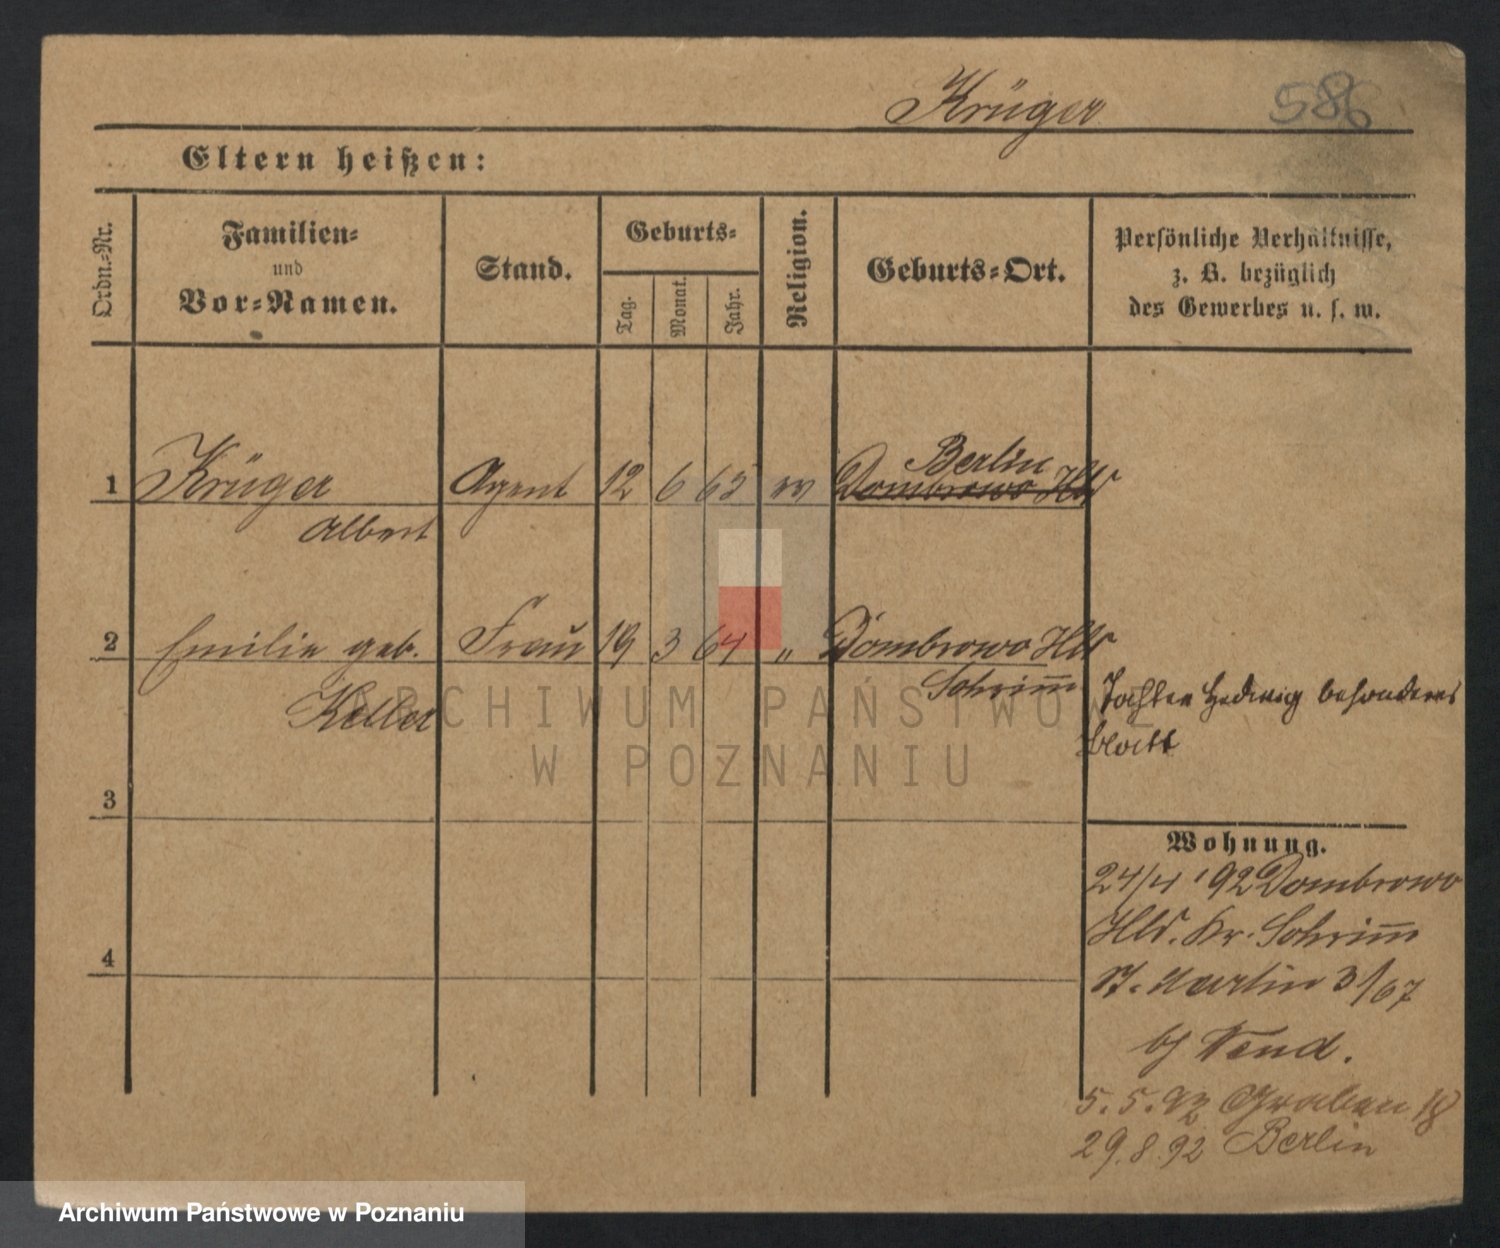 Krüger 586
Eltern heißen:
Ordn.-Nr.
Familien-
und
Vor-Namen.
Stand.
Geburts-
Tag.
Monat.
Jahr.
Religion.
Geburts-Ort.
Persönliche Verhältnisse,
z. B. bezüglich
des Gewerbes u. s. w.
Berlin
1 Krüger Agent 12 6 63 ev Dombrowo Hld
Albert
2 Emilie geb. Frau 19 3 64 " Dombrowo Hld
Keller Schrimm
Tochter Hedwig besonderes
blatt
3
Wohnung.
24/4 '92 Dombrowo
Hld. Kr. Schrimm
St. Martin 3/67
4
b/ Wend.
5.5.92 Graben 18
29.8.92 Berlin
ARCHIWUM PAŃSTWOWE
W POZNANIU
Archiwum Państwowe w Poznaniu